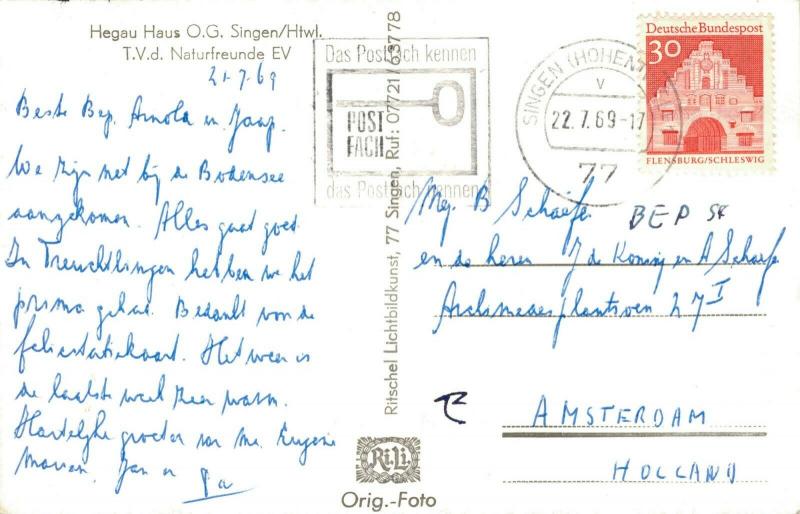 Hegau Haus O.G. Singen/Htwl.
T.V.d. Naturfreunde EV
21-7-69
Beste Bep, Arnold en Jaap.
We zijn net bij de Bodensee
aangekomen. Alles gaat goed.
In Treuchtlingen hebben we het
prima gehad. Bedankt voor de
felicitatiekaart. Het weer is
de laatste week zeer warm.
Hartelijke groeten van me, Eugenie
Jan en
Das Postfach kennen
POST
FACH
das Postfach kennen
SINGEN (HOHENTW
v
22.7.69-17
77
30
Deutsche Bundespost
FLENSBURG/SCHLESWIG
Ritschel Lichtbildkunst, 77 Singen, Ruf: 07721/63778
Mej. B Schaefer
BEP
en de heren J de Koning en A Schaefer
Archimedesplantsoen 27 I
AMSTERDAM
HOLLAND
Ri.Li.
Orig.-Foto